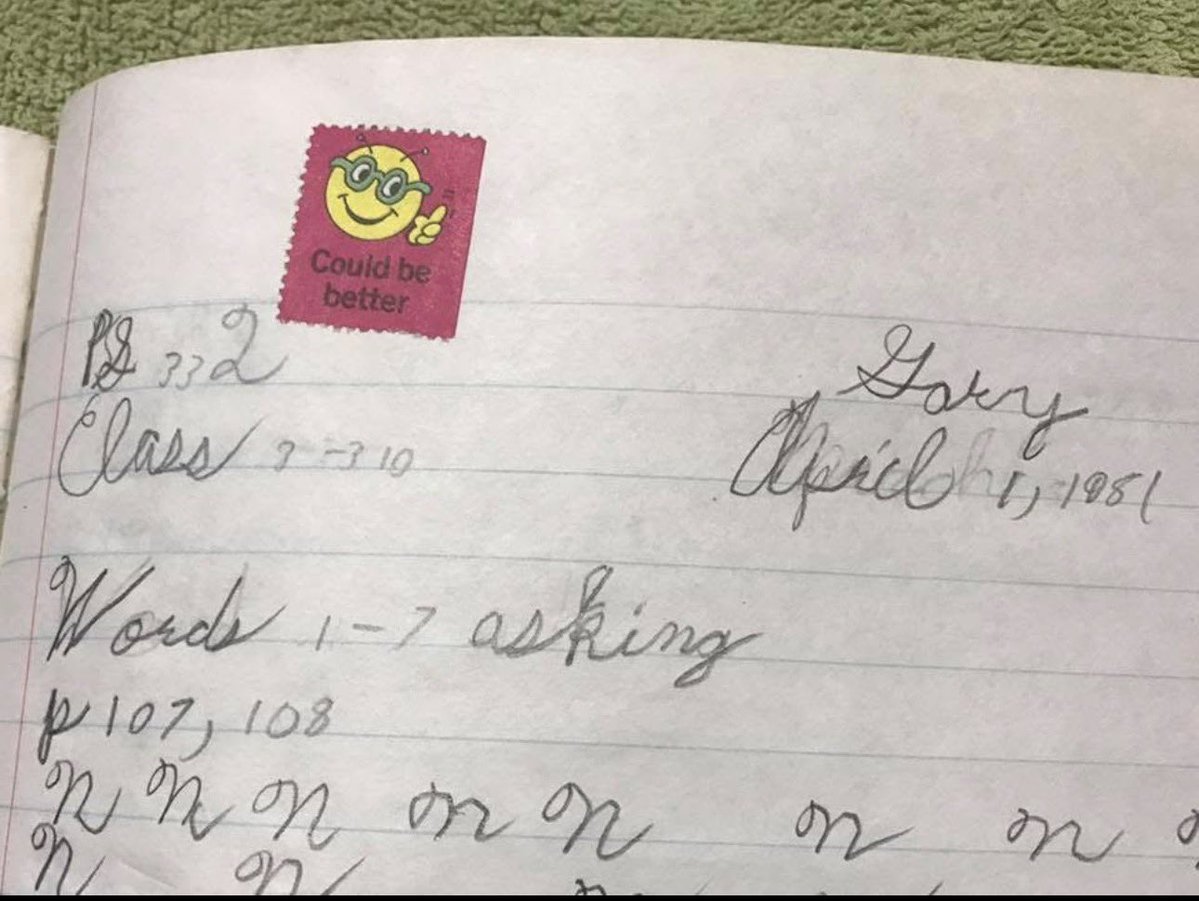 Could be
better
PS 332
Gary
Class 3-310
April 1, 1981
Words 1-7 asking
p 107, 108
n n n n n n n
n n